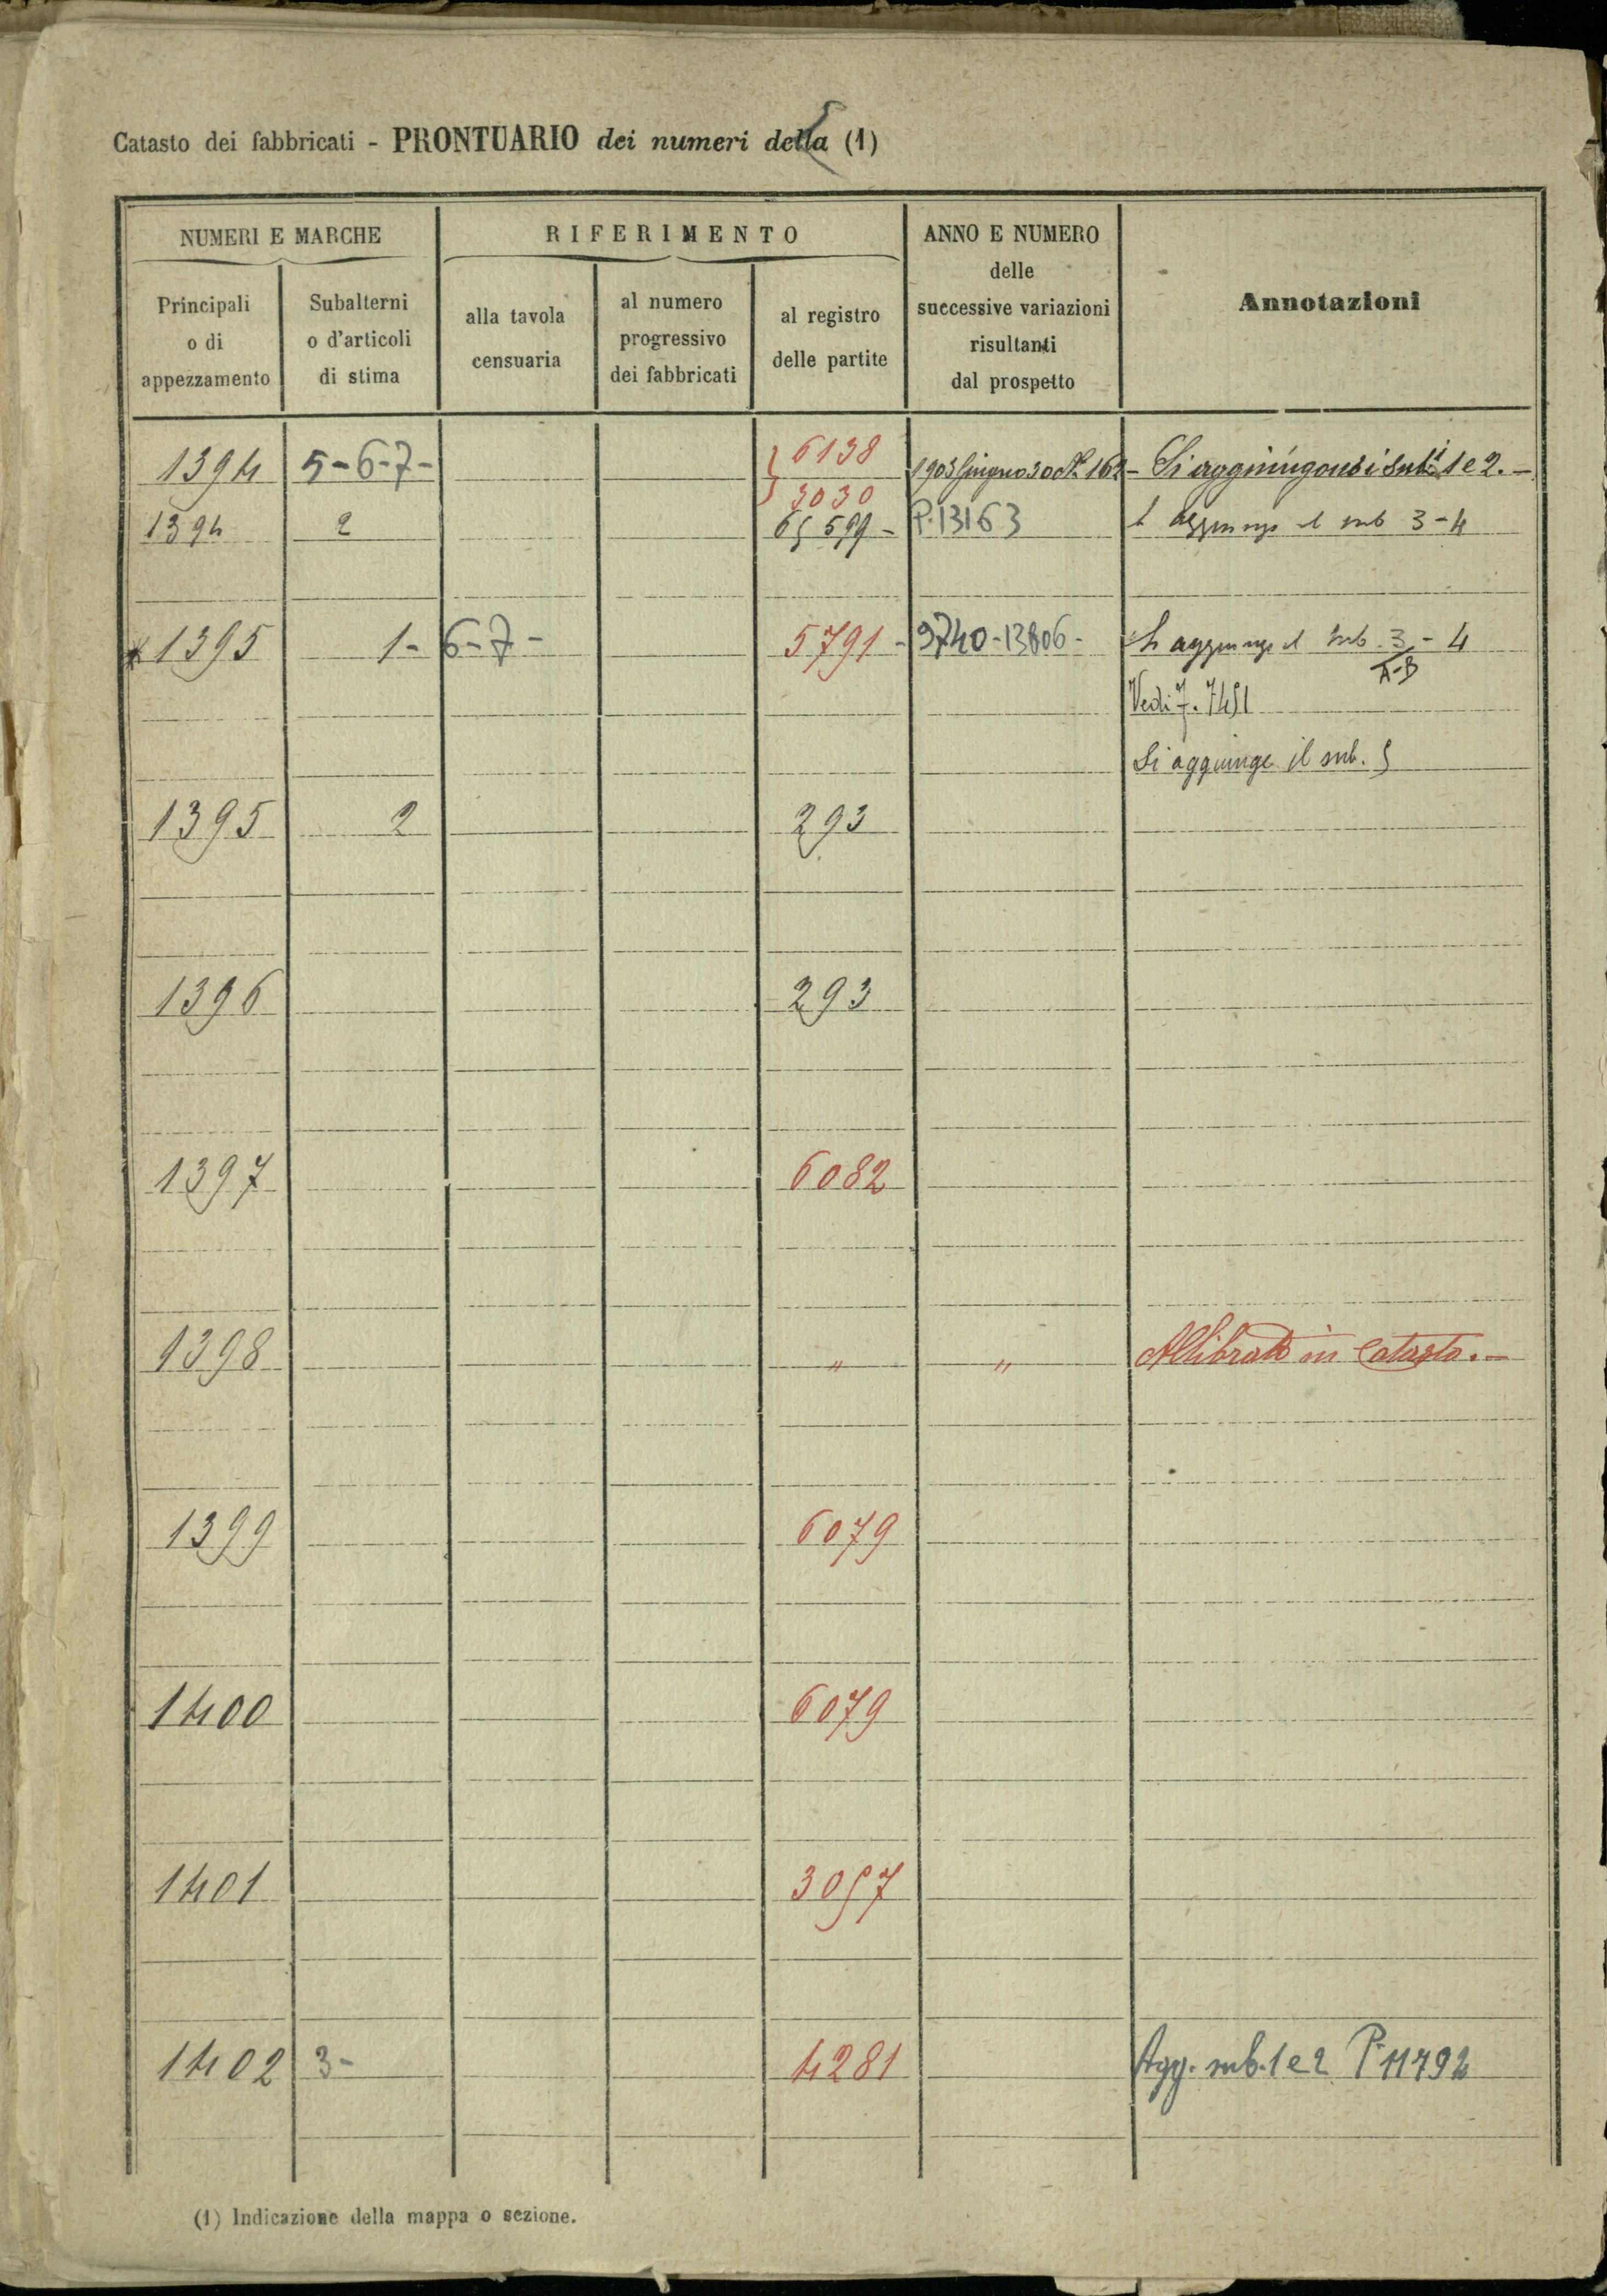 Catasto dei fabbricati - PRONTUARIO dei numeri della (1)
NUMERI E MARCHE
RIFERIMENTO
ANNO E NUMERO
delle
successive variazioni
risultanti
dal prospetto
Annotazioni
Principali
o di
appezzamento
Subalterni
o d'articoli
di stima
alla tavola
censuaria
al numero
progressivo
dei fabbricati
al registro
delle partite
1394 5-6-7- 6138 1903 Giugno 30 N. 162 - Si aggiungono i sub.i 1 e 2. -
3030
1394 2 65599 - P. 13163 Si aggiunge il sub 3-4
1395 1- 6-7- 5791 - 9740-13806- Si aggiunge il sub. 3 - 4
A-B
Vedi 7451
Si aggiunge il sub. 5
1395 2 293
1396 293
1397 6082
1398 " " Allibrato in Catasto. -
1399 6079
1400 6079
1401 3057
1402 3- 4281 Agg. sub. 1 e 2 P. 11792
(1) Indicazione della mappa o sezione.